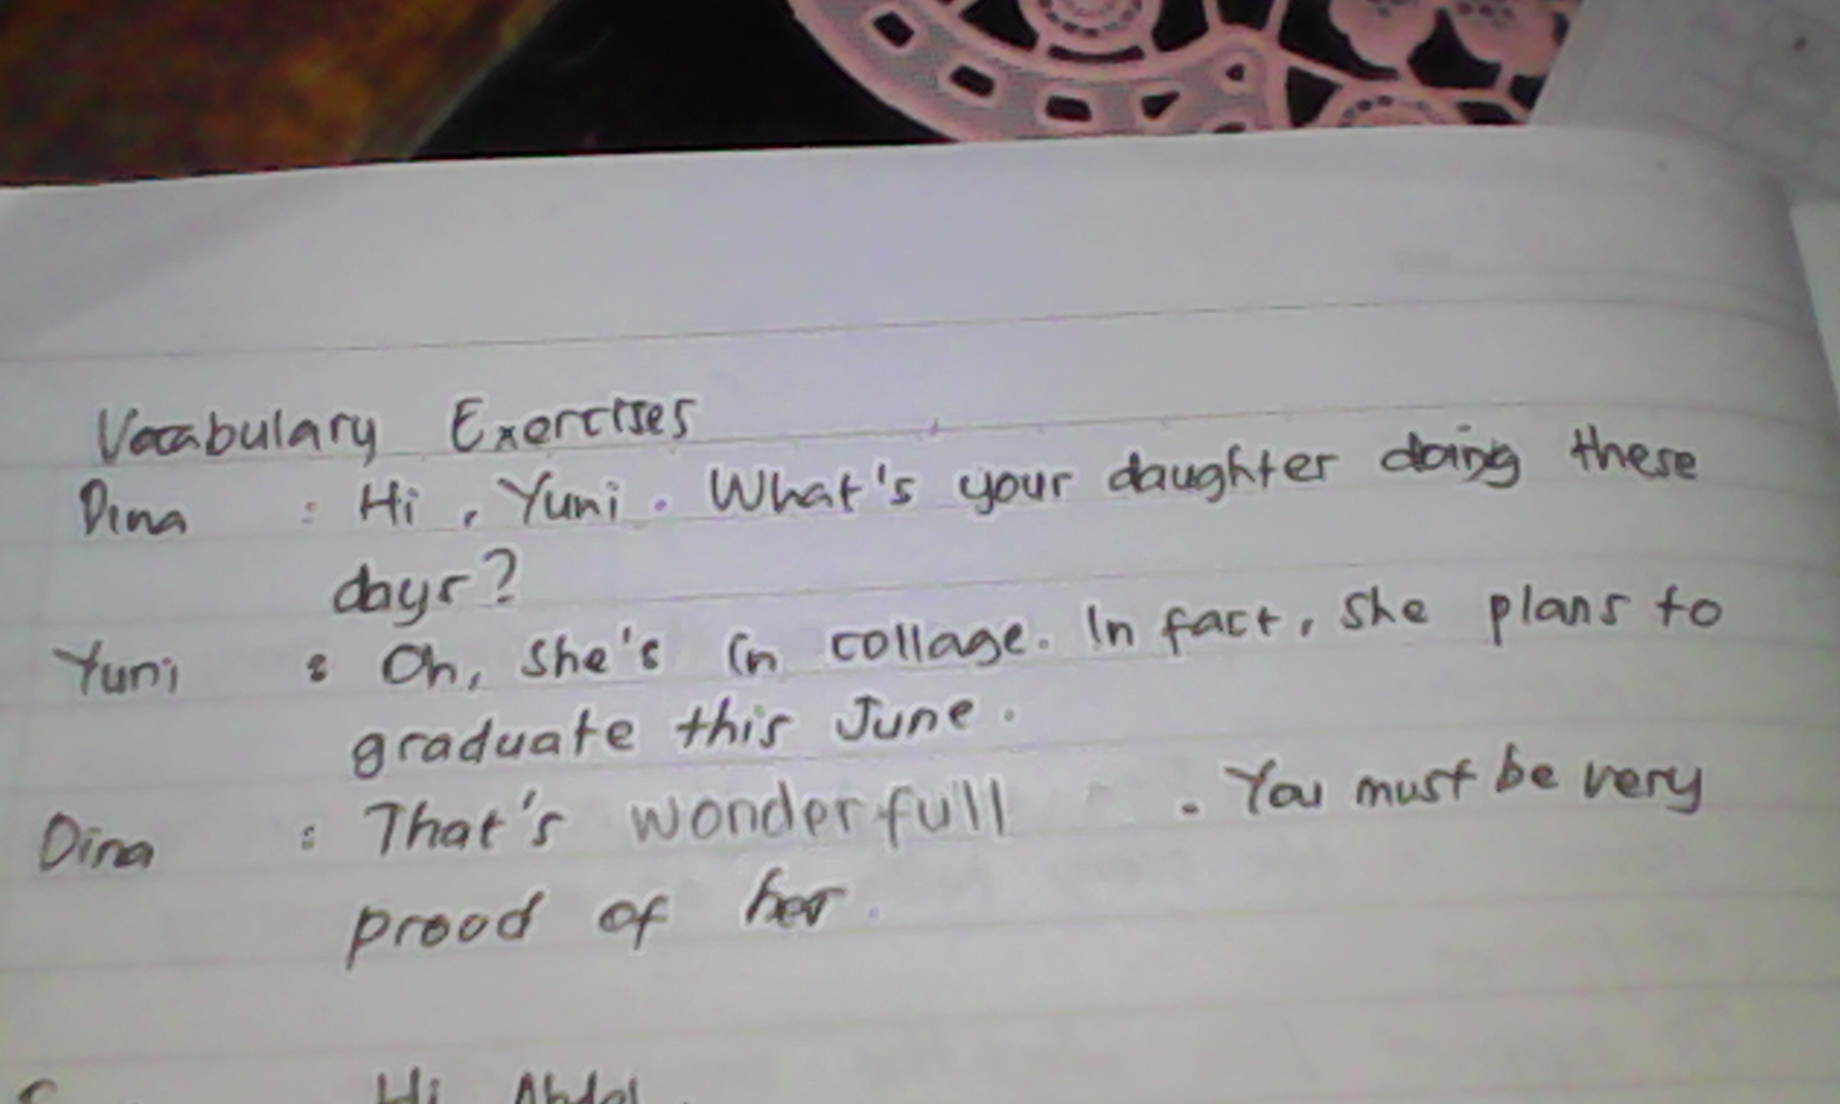 Vocabulary Exercises
Dina : Hi, Yuni. What's your daughter doing these
days?
Yuni : Oh, she's in collage. In fact, she plans to
graduate this June.
Dina : That's wonderfull . You must be very
prood of her.
Hi Abdel.